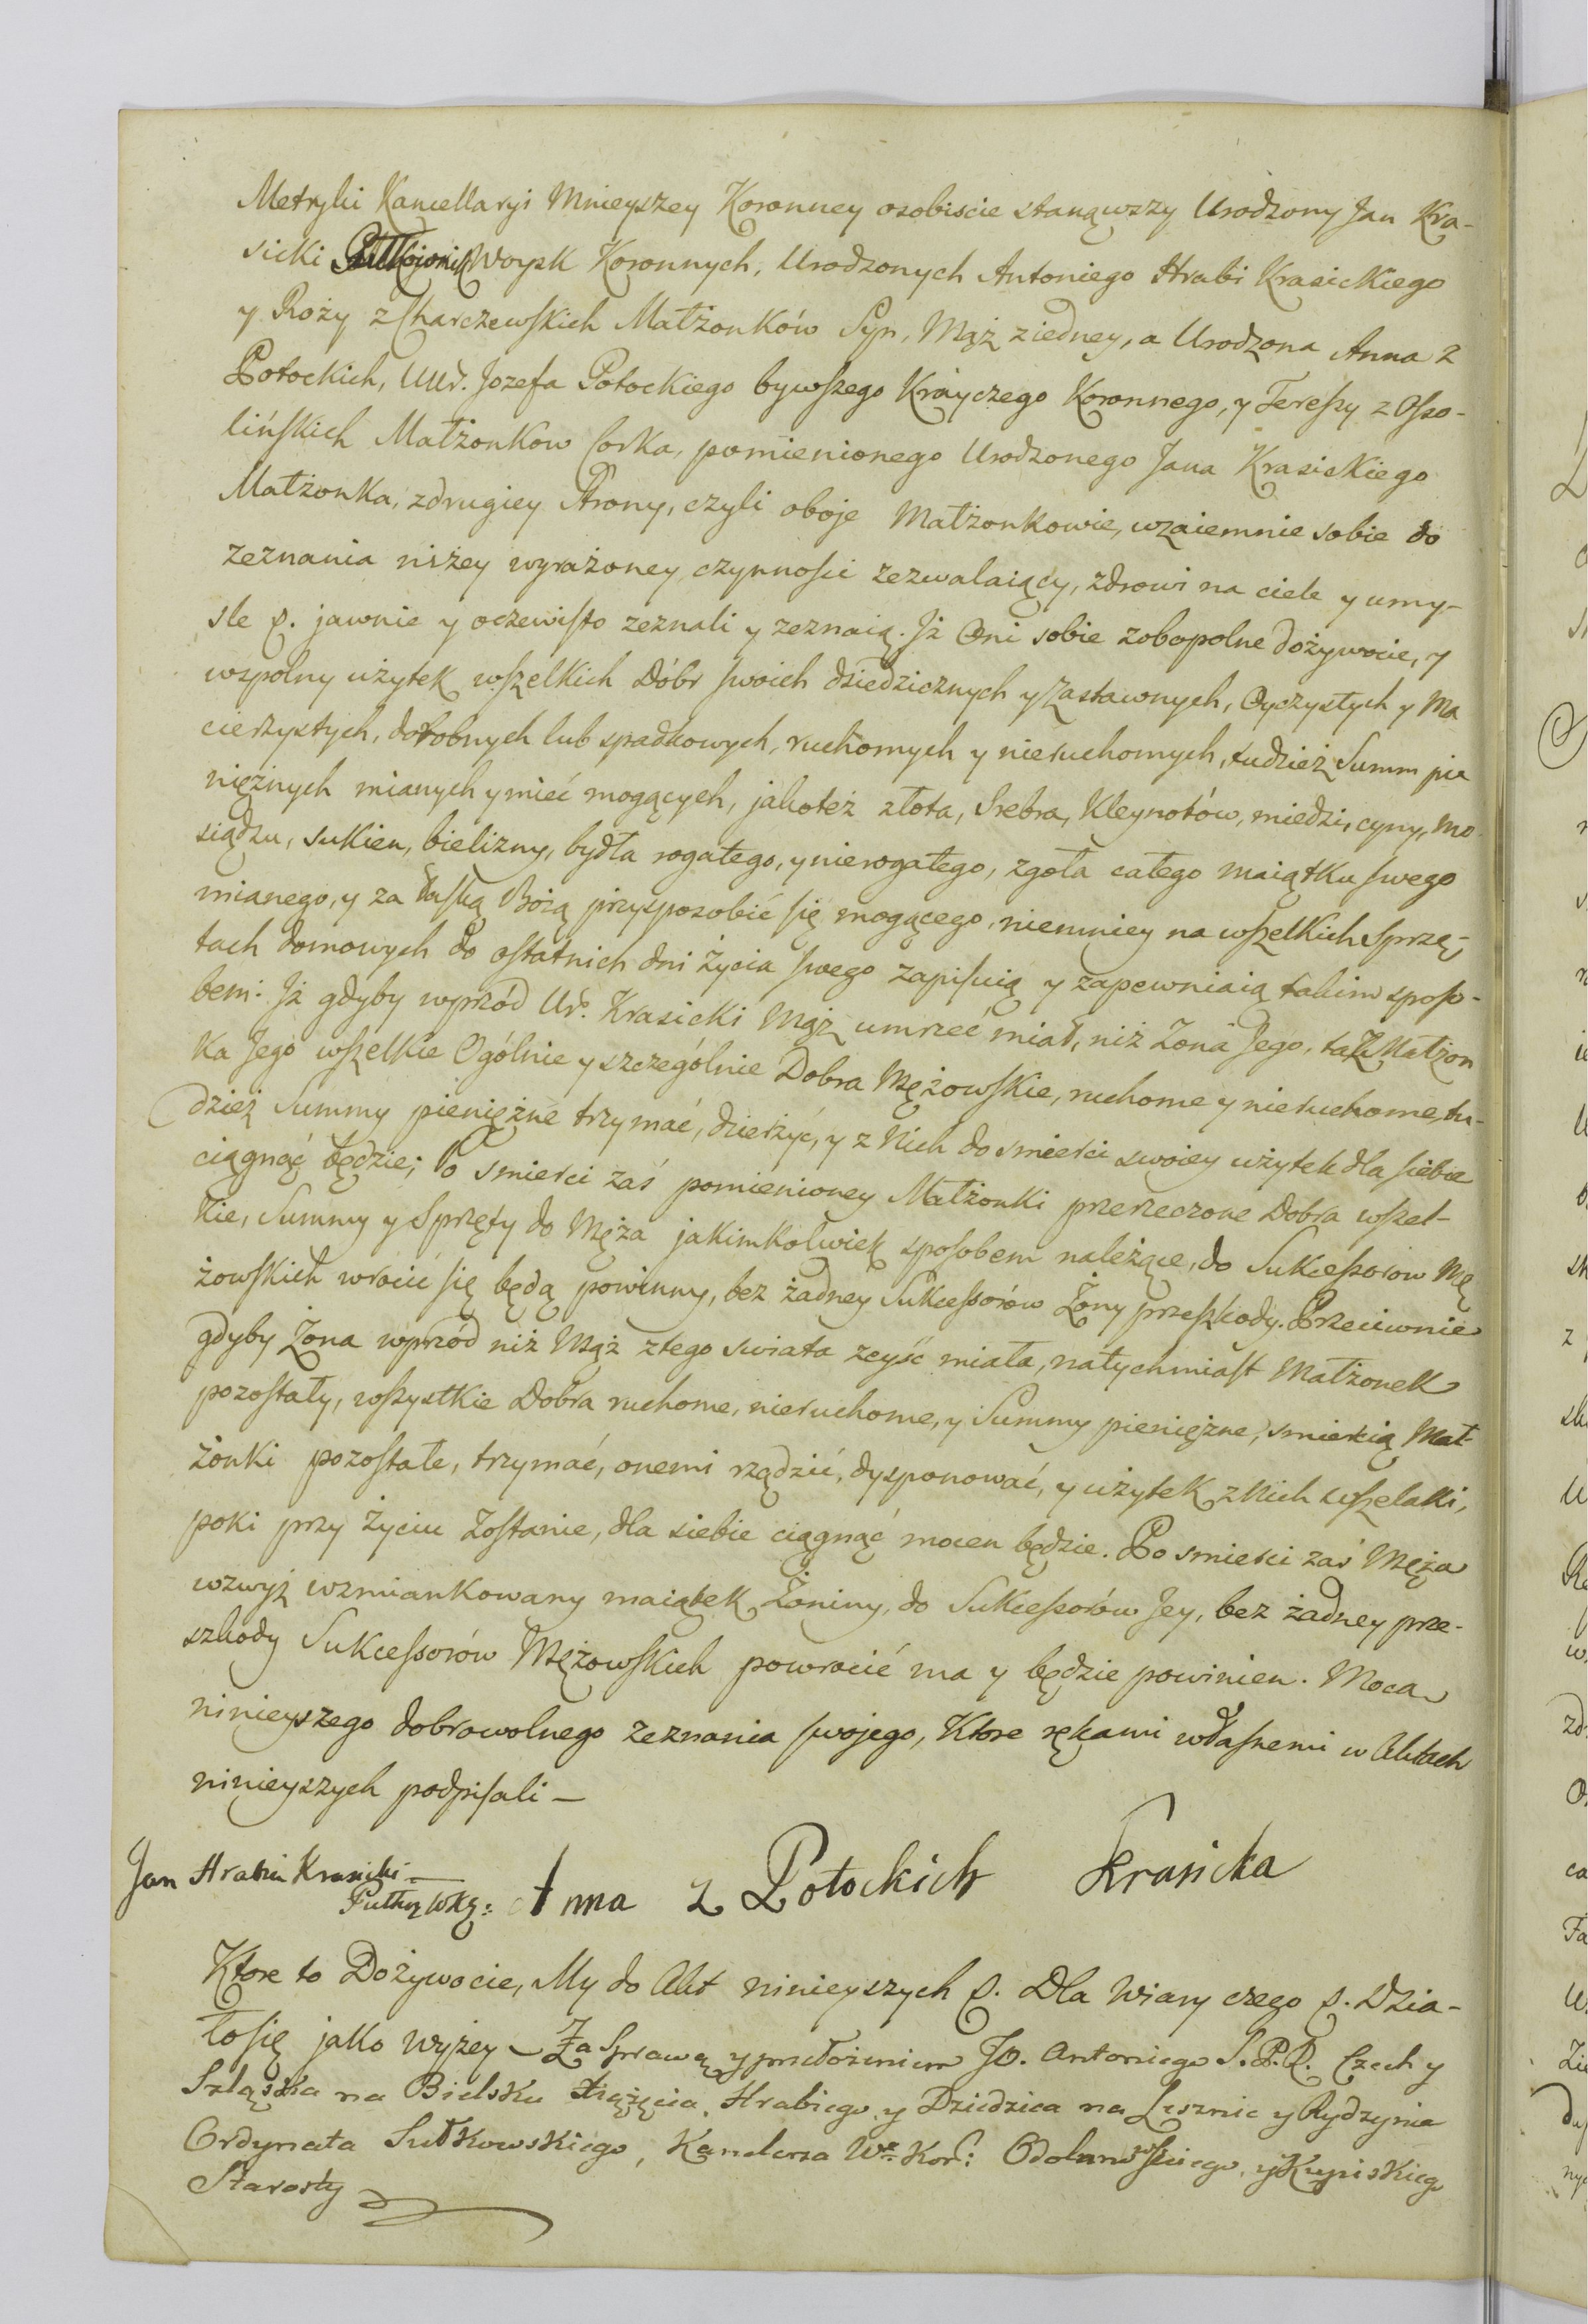 Metryki Kancellaryi Mnieyszey Koronney osobiscie stanąwszy Urodzony Jan Kra-
sicki Pułkownik Woysk Koronnych, Urodzonych Antoniego Hrabi Krasickiego
y Roży z Charczewskich Małżonków Syn, Mąż z iedney, a Urodzona Anna z
Potockich, UUr. Jozefa Potockiego bywszego Krayczego Koronnego, y Teressy z Osso-
lińskich Małżonkow Corka, pomienionego Urodzonego Jana Krasickiego
Małżonka, z drugiey Strony, czyli oboje Małżonkowie, wzaiemnie sobie do
zeznania niżey wyrażoney czynności zezwalaiący, zdrowi na ciele y umy-
sle p. jawnie y oczewisto zeznali y zeznaią. Jż Oni sobie zobopolne dożywocie, y
wspolny użytek wszelkich Dóbr swoich dziedzicznych y Zastawnych, Oyczystych y Ma
cierzystych, dorobnych lub spadkowych, ruchomych y nieruchomych, tudzież Summ pie
niężnych mianych y mieć mogących, jakoteż złota, Srebra, Kleynotów, miedzi, cyny, mo
siądzu, sukien, bielizny, bydła rogatego, y nierogatego, zgoła całego maiątku swego
mianego, y za łaską Bożą przysposobić się mogącego, niemniey na wszelkich Sprzę-
tach domowych do ostatnich dni życia swego zapisuią y zapewniaią takim sposo-
bem: Jż gdyby wprzód Ur. Krasicki Mąż umrzeć miał, niż Żona Jego, taż Małżon
ka Jego wszelkie Ogólnie y szczególnie Dobra Mężowskie, ruchome y nieruchome, tu-
dzież Summy pieniężne trzymać, dzierżyć, y z Nich do smierci swoiey użytek dla siebie
ciągnąć będzie; Po smierci zaś pomienioney Małżonki przerzeczone Dobra wszel-
kie, Summy y Sprzęty do Męża jakimkolwiek sposobem należące, do Sukcessorow Mę
żowskich wrocić się będą powinny, bez żadney Sukcessorów Żony przeszkody. Przeciwnie
gdyby Żona wprzód niż Mąż z tego swiata zeyść miała, natychmiast Małżonek
pozostały, wszystkie Dobra ruchome, nieruchome, y Summy pieniężne, smiercią Mał-
żonki pozostałe, trzymać, onemi rządzić, dysponować, y użytek z Nich wszelaki,
poki przy życiu zostanie, dla siebie ciągnąć mocen będzie. Po smierci zaś Męża
wzwyż wzmiankowany maiątek Żoniny, do Sukcessorów Jey, bez żadney prze-
szkody Sukcessorów Mężowskich powrocić ma y będzie powinien. Mocą
ninieyszego dobrowolnego zeznania swojego, Ktore rękami własnemi w Aktach
ninieyszych podpisali —
Jan Hrabia Krasicki —
Pułk WKg: Anna z Potockich Krasicka
Ktore to Dożywocie, My do Akt ninieyszych p. Dla Wiary czego p. Dzia-
ło się jako wyżey — Za Sprawą y przełożeniem JO. Antoniego S.P.R. Czech y
Szląska na Bielsku Xiążęcia, Hrabiego y Dziedzica na Lesznie y Rydzynie
Ordynata Sułkowskiego, Kanclerza Wo Kor: Odolanowskiego, y Kupiskieg
Starosty